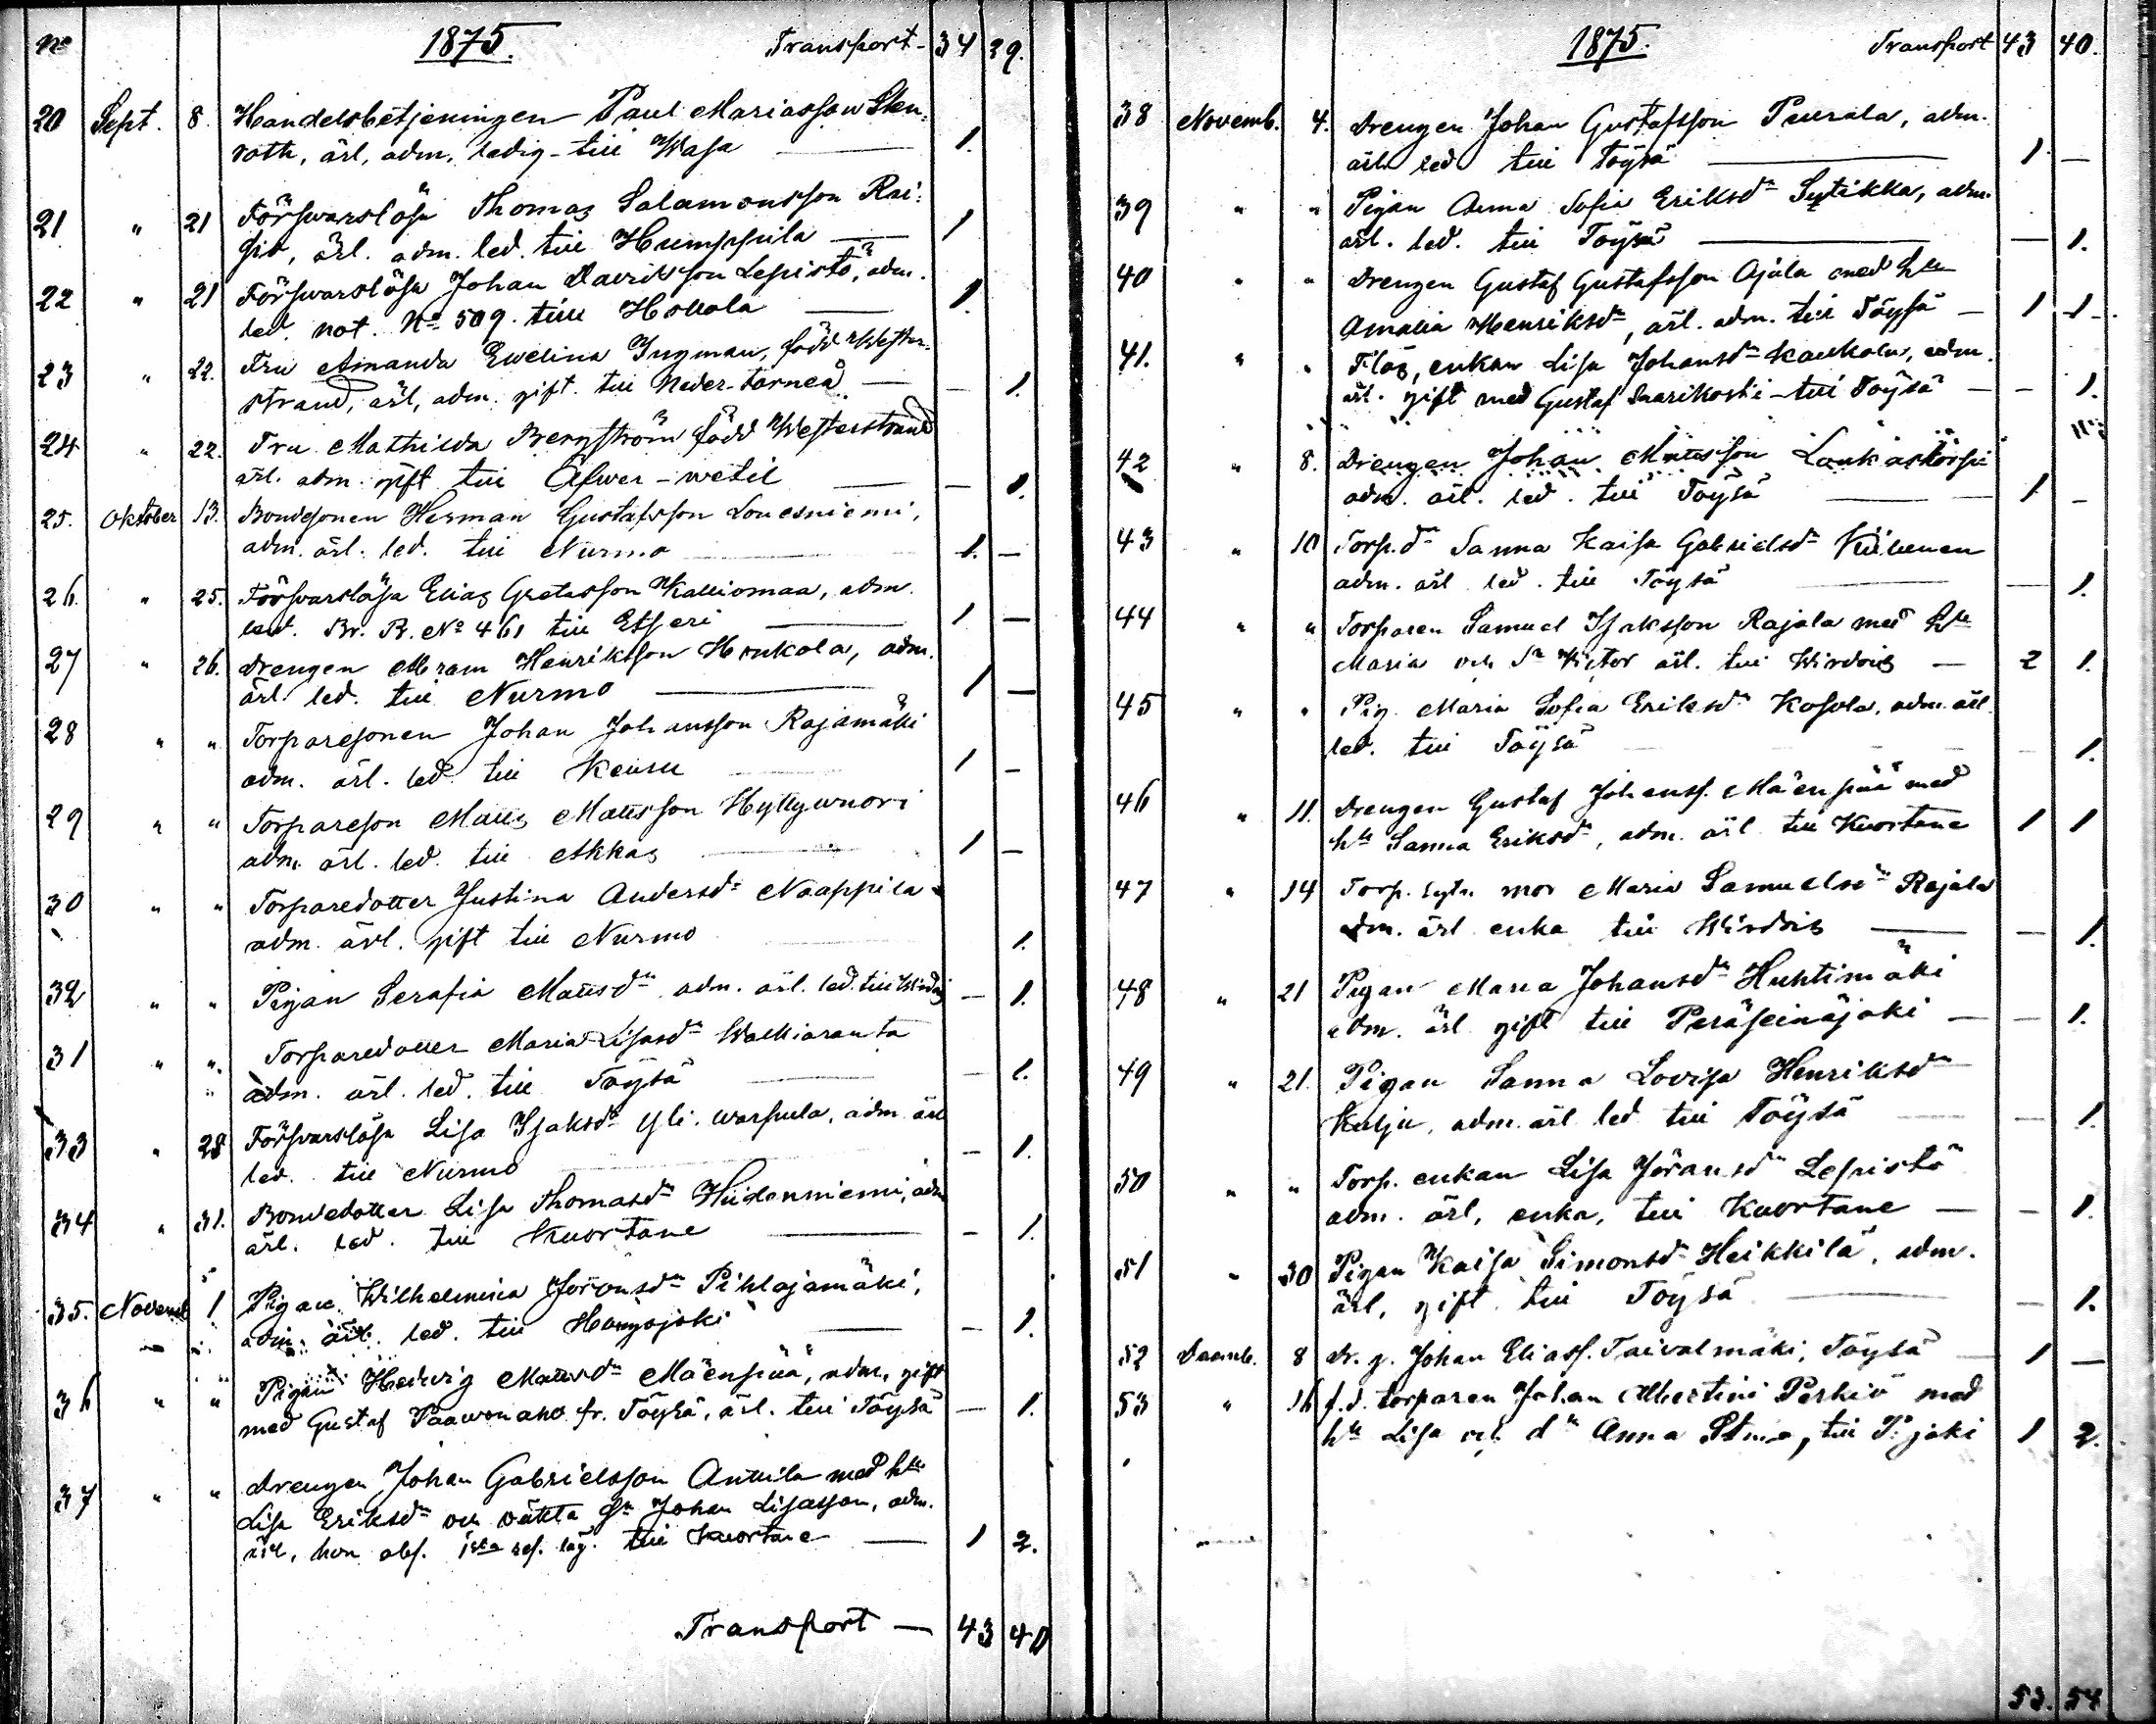 No 1875. Transport- 34 29.
20 Sept. 8. Handelsbetjeningen Paul Mariasson Sten-
roth, ärl, adm, ledig - till Wasa — 1.
21 " 21 Förswarslösa Thomas Salamonsson Rai-
pio, ärl. adm. led. till Humppila — 1
22 " 21 Förswarslösa Johan Davidsson Lepistö, adm.
led. not. No 509. till Hollola — 1.
23 " 22. Fru Amanda Ewelina Ingman, född Wester-
strand, ärl, adm. gift. till Neder-torneå — — 1.
24 " 22. Fru Mathilda Bergström född Westerstrand
ärl. adm. gift till Öfwer-wetil — — 1.
25. Oktober 13. Bondesonen Herman Gustafsson Louesniemi,
adm. ärl. led. till Nurmo 1. —
26. " 25. Förswarslösa Elias Gretasson Kalliomaa, adm.
led. Br. B. No 461 till Etseri — 1 —
27 " 26. Drengen Abram Henriksson Honkola, adm.
ärl. led. till Nurmo — 1 —
28 " " Torparesonen Johan Johansson Rajamäki
adm. ärl. led. till Keuru 1 —
29 " " Torpareson Matts Mattsson Hyllywuori
adm. ärl. led. till Akkas 1 —
30 " " Torparedotter Justina Andersdr Naappila
adm. ärl. gift till Nurmo 1.
32 " " Pigan Serafia Mattsdr adm. ärl. led. till Wirdois — 1.
31 " " Torparedotter Maria Lisasdr Walkiaranta
adm. ärl. led. till Töysä — 1.
33 " 28 Förswarslösa Lisa Isaksdr Yli-warpula, adm. ärl
led. till Nurmo — 1.
34 " 31. Bondedotter Lisa Thomasdr Hiidenniemi, adm
ärl. led. till Kuortane — — 1.
35. Novemb 1 Pigan Wilhelmina Joronsdr Pihlajamäki,
adm. ärl. led. till — — 1.
36 " " Pigan Hedwig Mattsdr Mäenpää, adm, gift
med Gustaf Paawonaho fr. Töysä, ärl. till Töysä — 1.
37 " " Drengen Johan Gabrielsson Anttila med hu
Lisa Eriksdr och oäkta Sn Johan Lisasson, adm.
ärl, hon abs. till Kuortane — 1 2.
Transport — 43 40
1875. Transport 43 40.
38 Novemb. 4. Drengen Johan Gustafsson Peurala, adm.
ärl. led till Töysä — 1 —
39 " " Pigan Anna Sofia Eriksdr Sytikka, adm.
ärl. led. till Töysä — — 1.
40 " " Drengen Gustaf Gustafsson Ajala med hu
Amalia Henriksdr, ärl. adm. till Töysä — 1 1 —
41. " " enkan Lisa Johansdr Kaukola, adm.
ärl. gift med Gustaf Saarikoski till Töysä — — 1.
42 " 8. Drengen Johan Mattsson Laukaskorpi
adm. ärl. led. till Töysä — 1 —
43 " 10 Torp. dr Sanna Kaisa Gabrielsdr
adm. ärl led. till Töysä — — 1.
44 " " Torparen Samuel Isaksson Rajala med hu
Maria och Sn Victor ärl. till Wirdois — 2 1.
45 " " Pig. Maria Sofia Eriksdr Kosola, adm. ärl
led. till Töysä — 1.
46 " 11. Drengen Gustaf Johanss. Mäenpää med
hu Sanna Eriksdr, adm. ärl till Kuortane 1 1
47 " 14 Torp. mor Maria Samuelsdr Rajala
adm. ärl enka till Wirdois — — 1.
48 " 21 Pigan Maria Johansdr Huhtimäki
adm. ärl gift till Peräseinäjoki — — 1.
49 " 21. Pigan Sanna Lovisa Henriksdr
Kulju, adm. ärl led till Töysä — 1.
50 " " Torp. enkan Lisa Jöransdr Lepistö
adm. ärl, enka, till Kuortane — — 1.
51 " 30 Pigan Kaisa Simonsdr Heikkilä, adm.
ärl, gift till Töysä — — 1.
52 Decemb. 8 Dr. g. Johan Eliass. Taivalmäki, Töysä — 1 —
53 " 16 f.d. torparen Johan Albertini Perkiö med
hu Lisa och dr Anna Stina, till P. joki 1 2.
53. 54